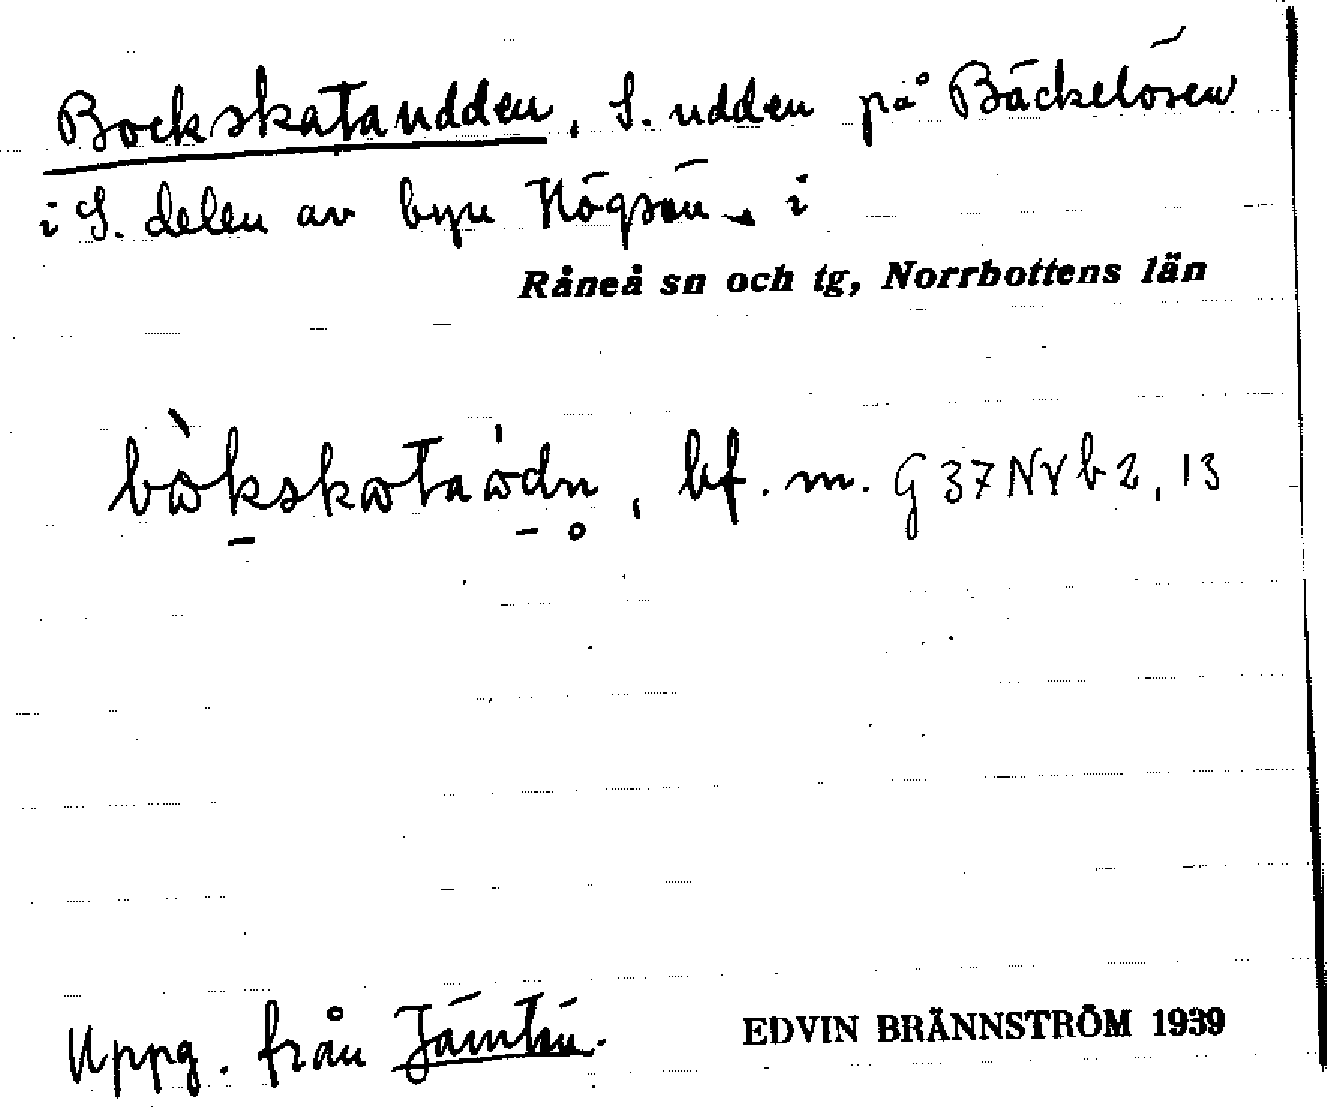 Bockskataudden, S. udden på Bäckelösen
i S. delen av byn Högsön i
Råneå sn och tg, Norrbottens län
bf. m. G 37 NV b 2, 13
Uppg. från Jämtön.
EDVIN BRÄNNSTRÖM 1939